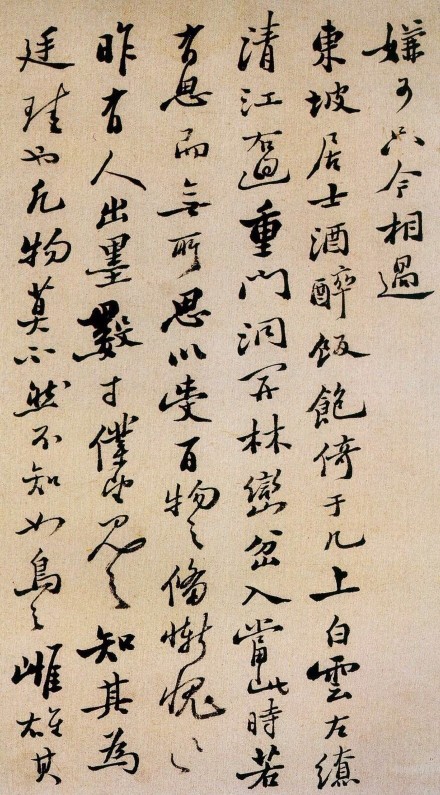 嫌可只令相過
東坡居士酒醉飯飽倚于几上白雲左繚
清江右洄重門洞開林巒岔入當此時若
有思而無所思以受百物之備慚愧〻
昨有人出墨數寸僕望見之知其為
廷珪也凡物莫不然不知如烏之雌雄其